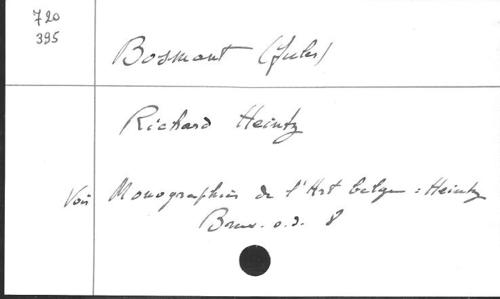 720
395
Bosmant (Jules)
Richard Heintz
Voir Monographies de l'Art belge : Heintz
Brux. s.d. 8